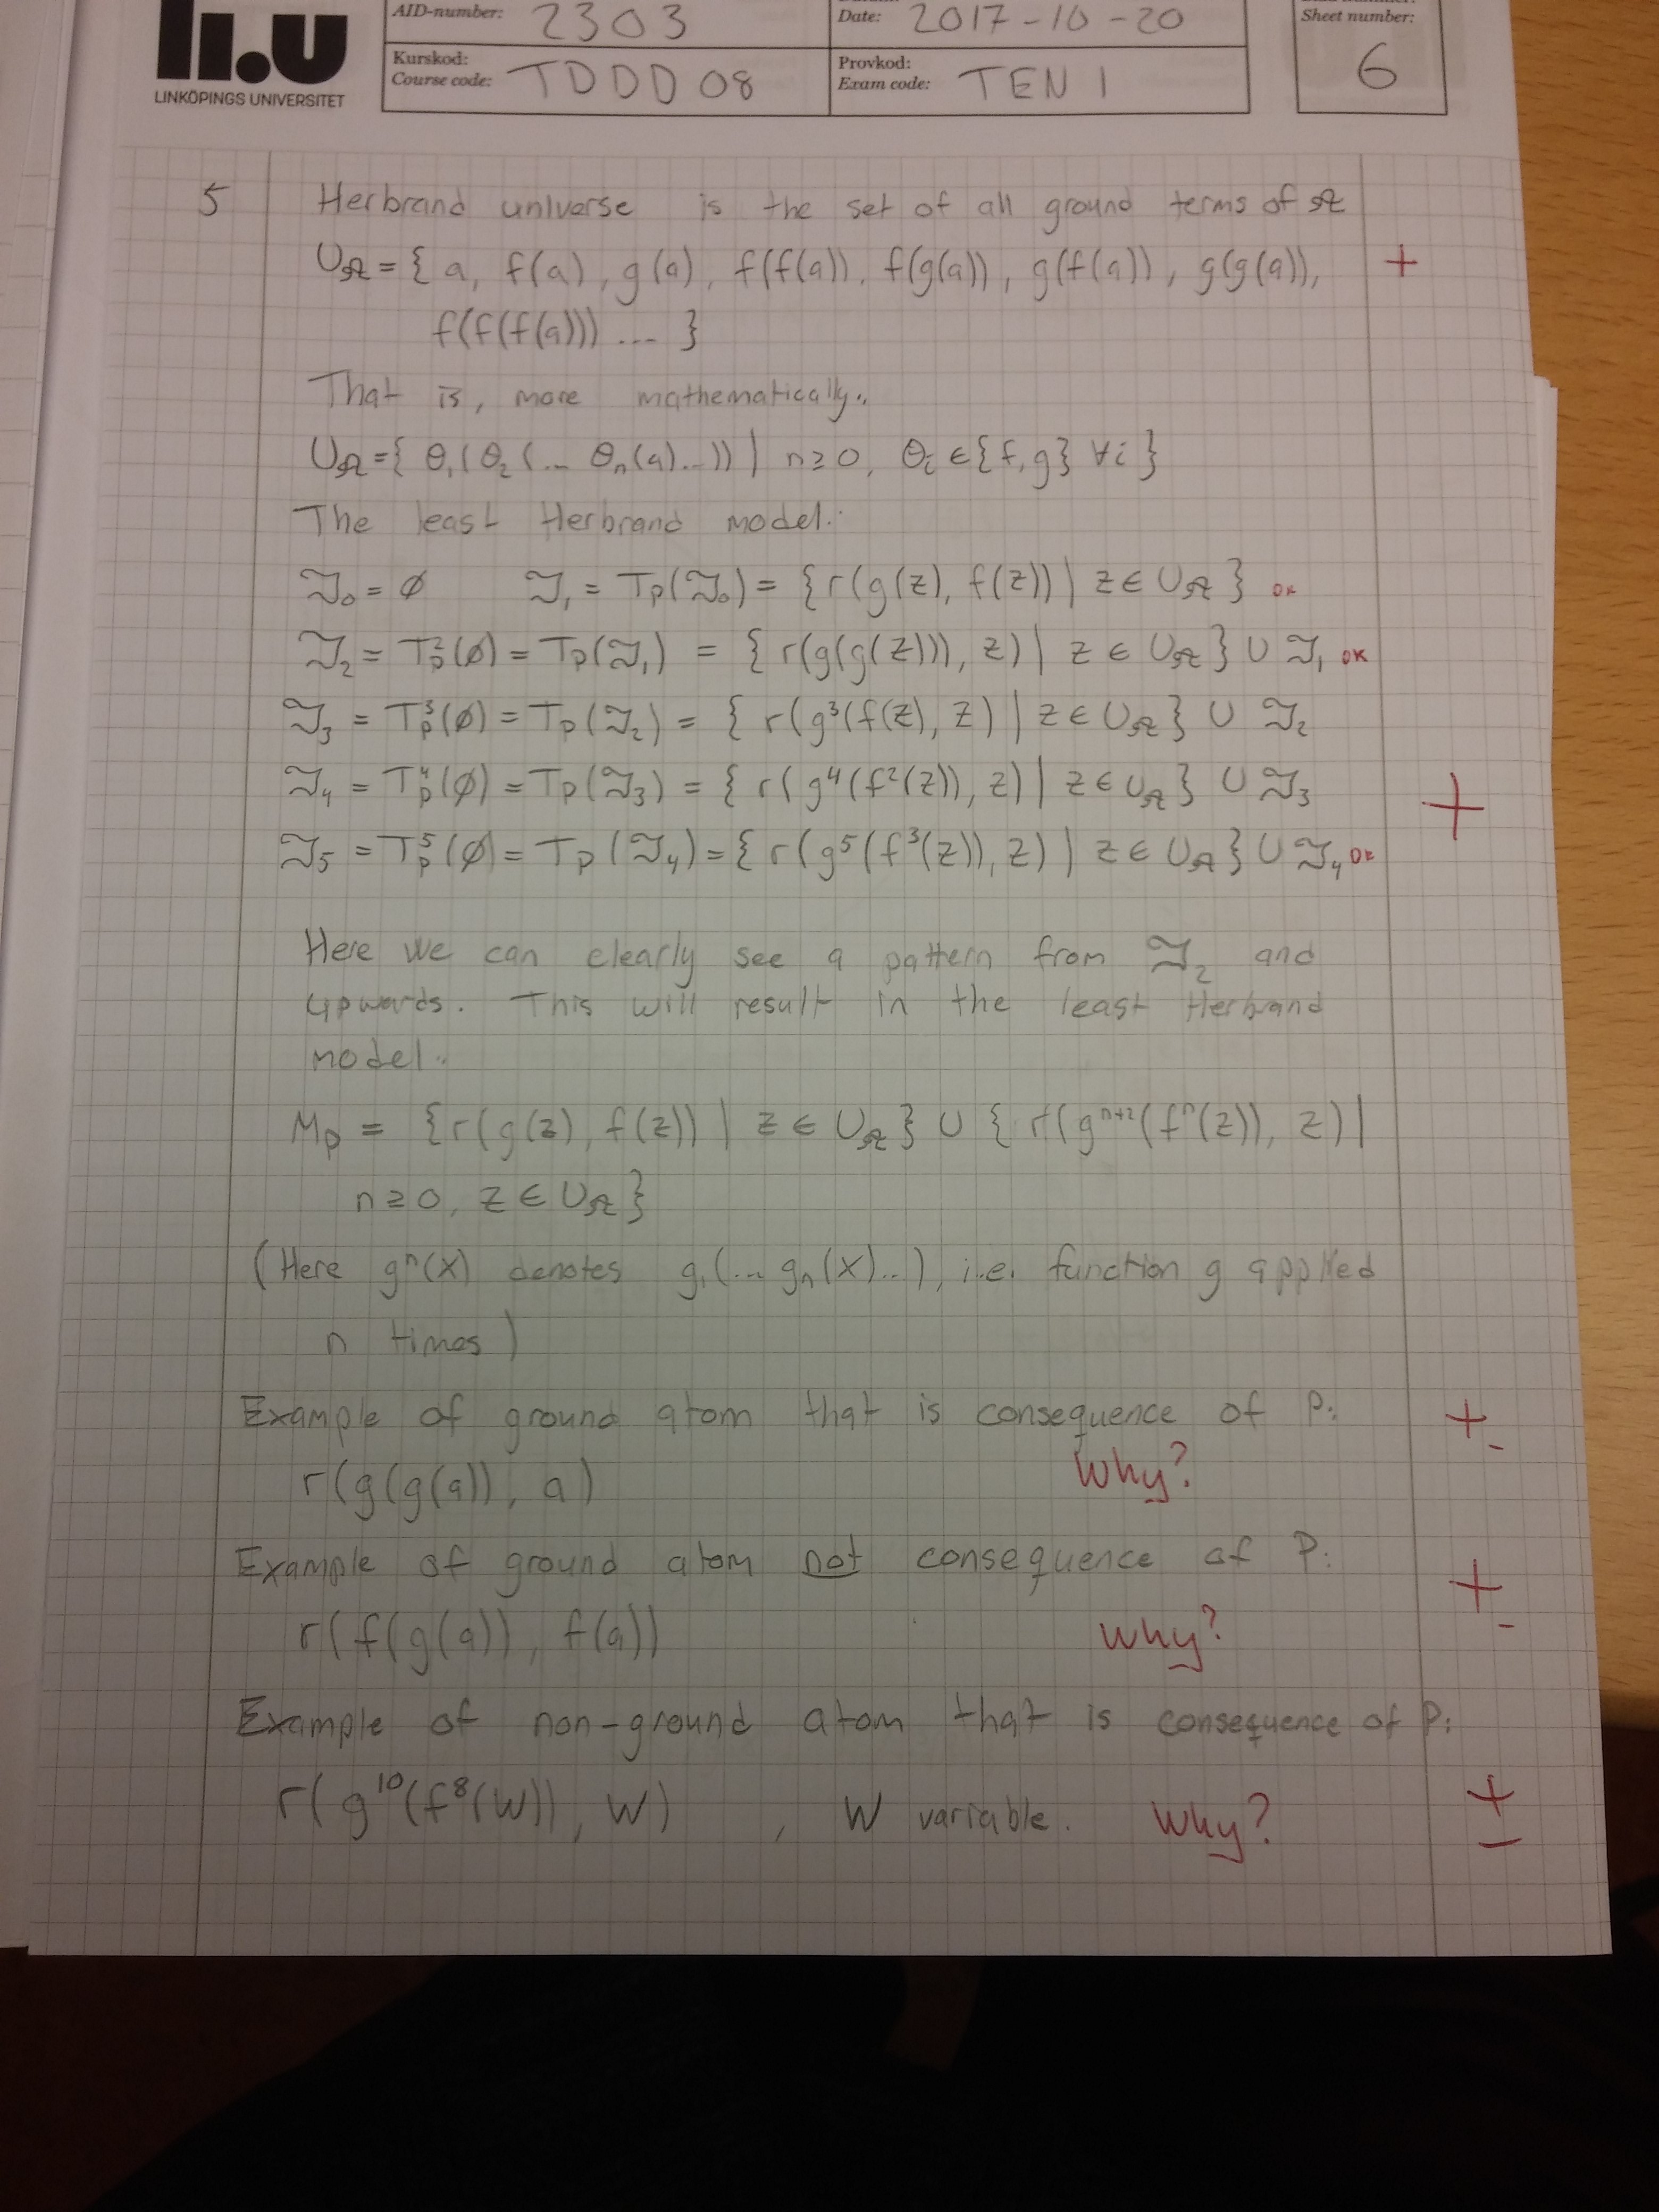 li.u
LINKÖPINGS UNIVERSITET
AID-number: 2303
Date: 2017-10-20
Sheet number: 6
Kurskod:
Course code: TDDD 08
Provkod:
Exam code: TEN 1
5 Herbrand universe is the set of all ground terms of 𝒜
U𝒜 = { a, f(a), g(a), f(f(a)), f(g(a)), g(f(a)), g(g(a)), +
f(f(f(a))) ... }
That is, more mathematically:
U𝒜 = { θ₁(θ₂(... θₙ(a)...)) | n≥0, θᵢ ∈ {f,g} ∀i }
The least Herbrand model:
ℑ₀ = ∅ ℑ₁ = Tp(ℑ₀) = {r(g(z), f(z)) | z ∈ U𝒜 } OK
ℑ₂ = Tp²(∅) = Tp(ℑ₁) = { r(g(g(z))), z) | z ∈ U𝒜 } ∪ ℑ₁ OK
ℑ₃ = Tp³(∅) = Tp(ℑ₂) = { r(g³(f(z), z) | z ∈ U𝒜 } ∪ ℑ₂
ℑ₄ = Tp⁴(∅) = Tp(ℑ₃) = { r(g⁴(f²(z)), z) | z ∈ U𝒜 } ∪ ℑ₃ +
ℑ₅ = Tp⁵(∅) = Tp(ℑ₄) = { r(g⁵(f³(z)), z) | z ∈ U𝒜 } ∪ ℑ₄ OK
Here we can clearly see a pattern from ℑ₂ and
upwards. This will result in the least Herbrand
model:
Mp = {r(g(z), f(z)) | z ∈ U𝒜 } ∪ { r(gⁿ⁺²(fⁿ(z)), z) |
n ≥ 0, z ∈ U𝒜 }
(Here gⁿ(x) denotes g₁(... gₙ(x)...), i.e. function g applied
n times)
Example of ground atom that is consequence of P: + -
r(g(g(a)), a) Why?
Example of ground atom not consequence of P: + -
r(f(g(a)), f(a)) Why?
Example of non-ground atom that is consequence of P:
r(g¹⁰(f⁸(W)), W) , W variable. Why? + -